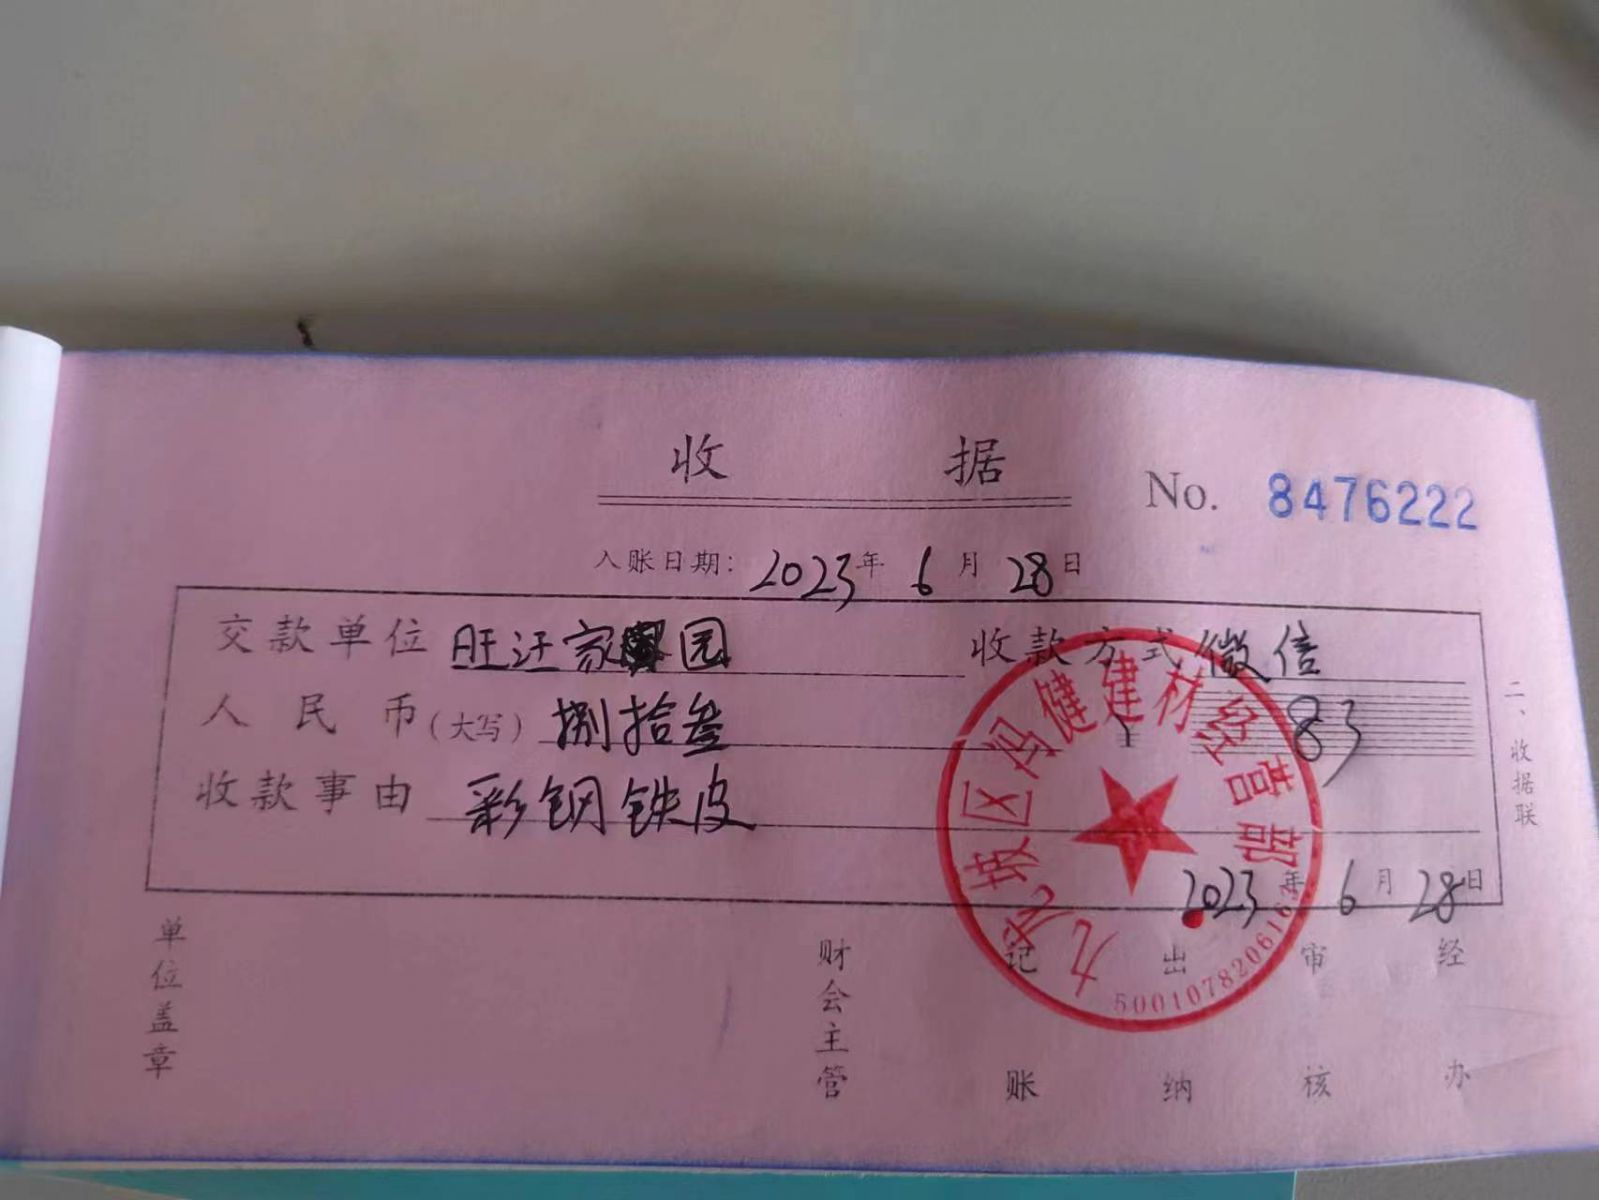 收据
No. 8476222
入账日期: 2023年 6月 28日
交款单位 旺汪家园 收款方式 微信
人民币(大写) 捌拾叁 ¥ 83
收款事由 彩钢铁皮
2023年 6月 28日
二、收据联
单位盖章 财会主管 记账 出纳 审核 经办
九龙坡区冯健建材经营部